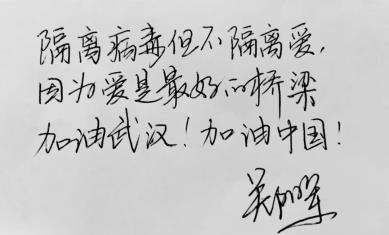 隔离病毒但不隔离爱,
因为爱是最好的桥梁
加油武汉!加油中国!